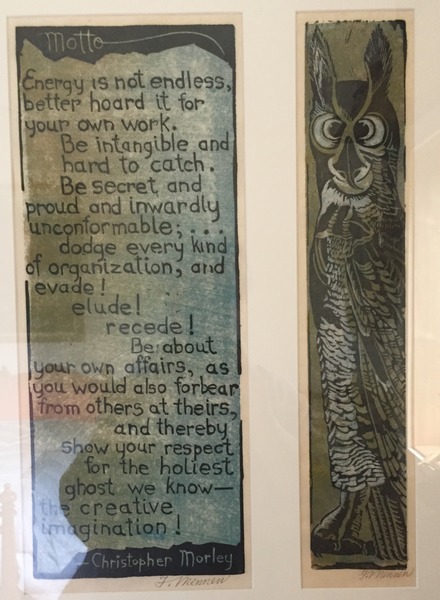 Motto
Energy is not endless,
better hoard it for
your own work.
Be intangible and
hard to catch.
Be secret and
proud and inwardly
unconformable; . . .
dodge every kind
of organization, and
evade!
elude!
recede!
Be about
your own affairs, as
you would also forbear
from others at theirs,
and thereby
show your respect
for the holiest
ghost we know—
the creative
imagination!
—Christopher Morley